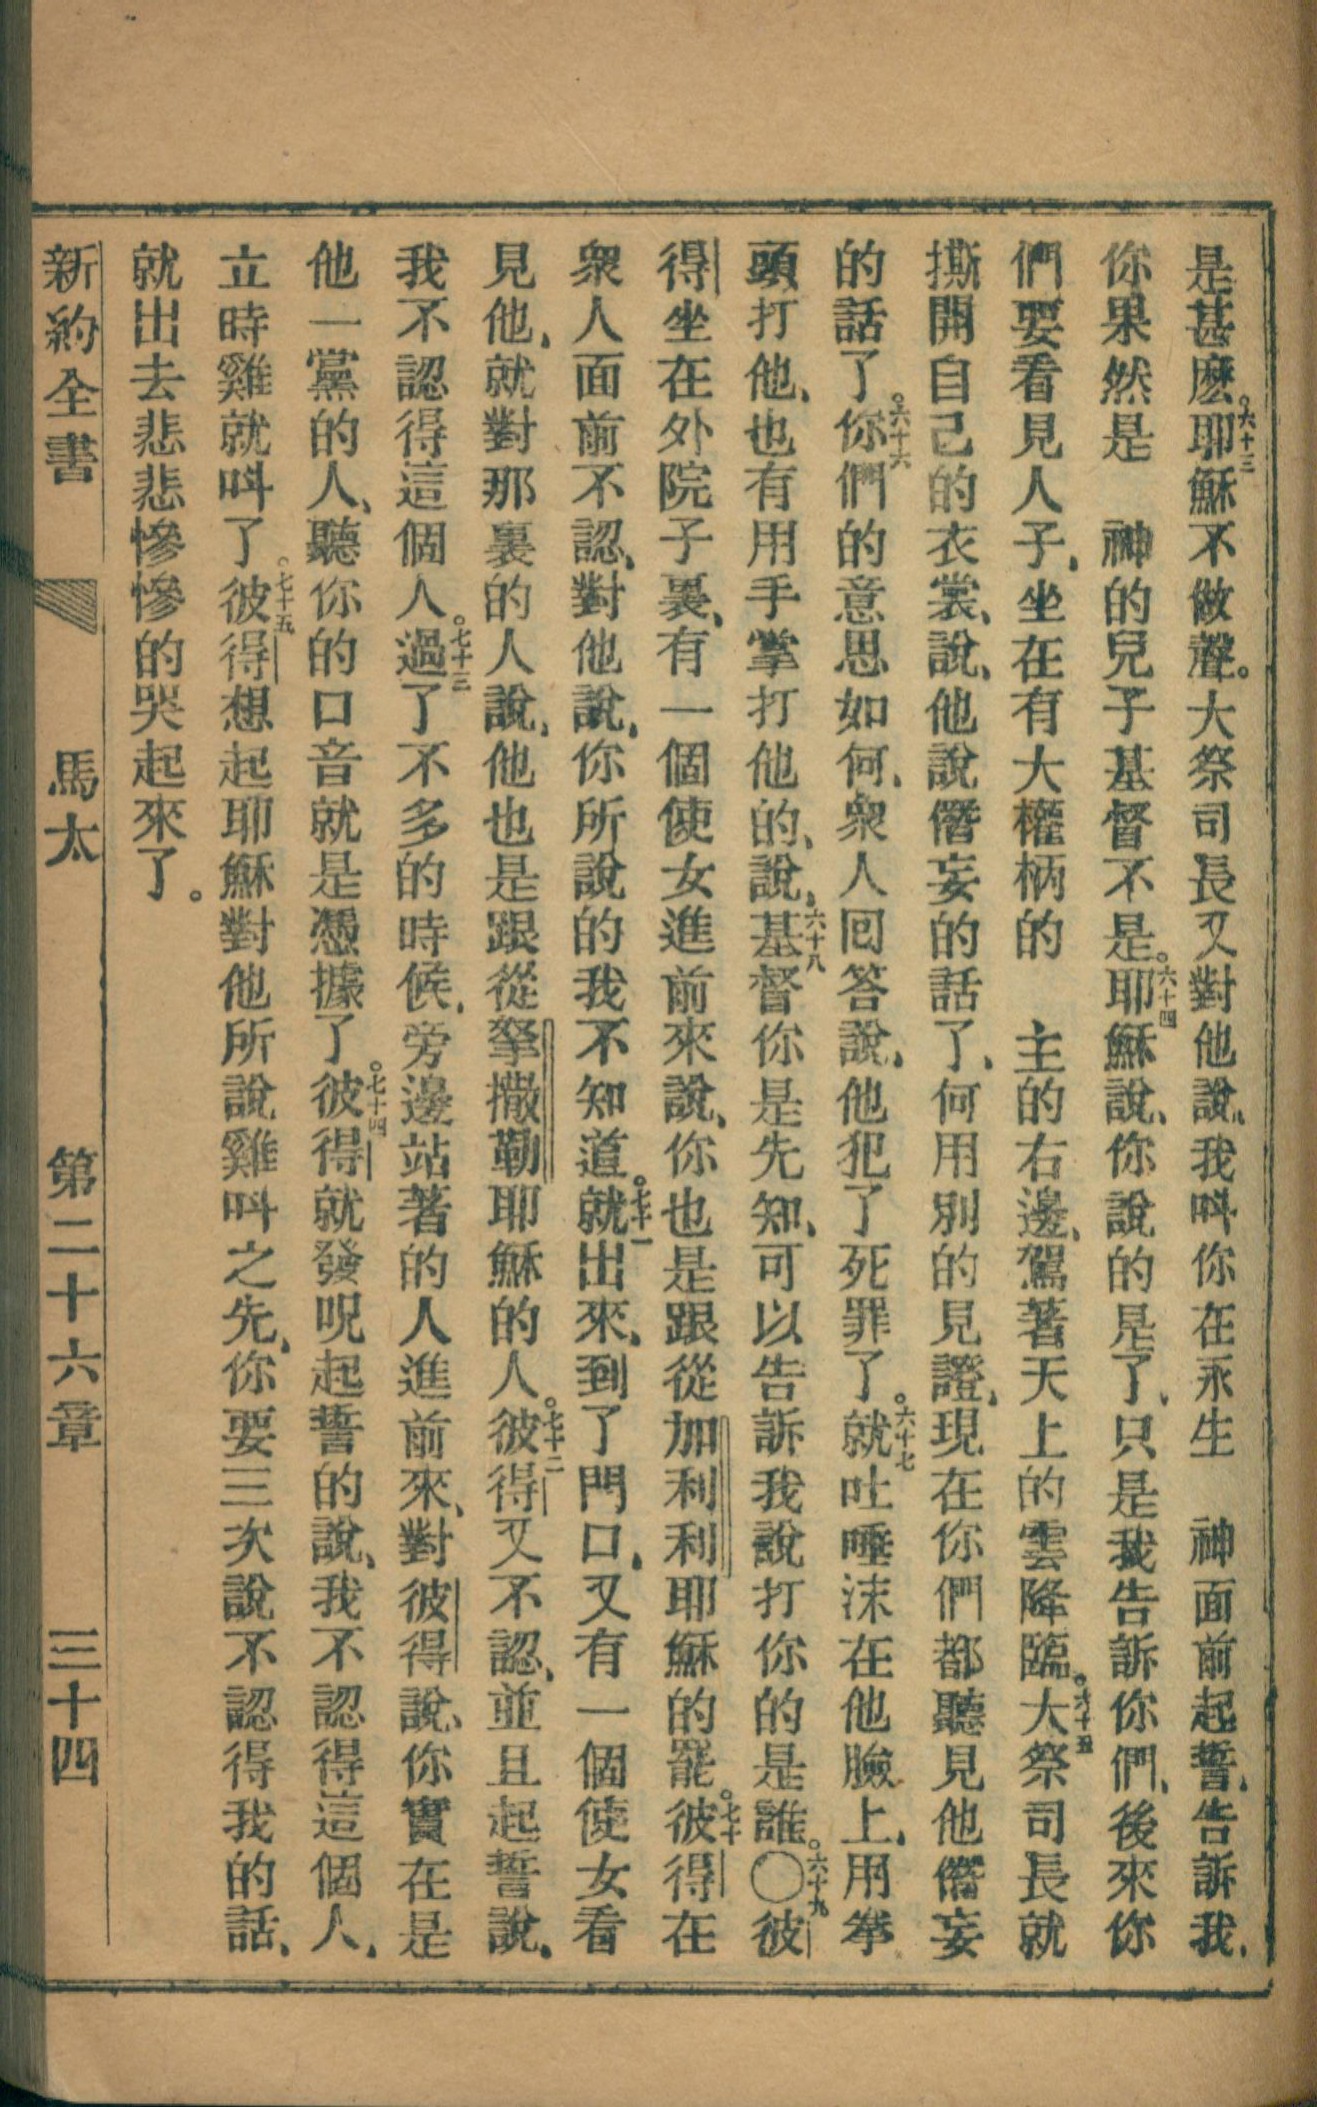 是甚麽。六十三耶穌不做聲。大祭司長又對他說、我呌你在永生　神面前起誓、告訴我、
你果然是　神的兒子基督不是。六十四耶穌說、你說的是了、只是我告訴你們、後來你
們要看見人子、坐在有大權柄的　主的右邊、駕著天上的雲降臨。六十五大祭司長就
撕開自己的衣裳、說、他說僭妄的話了、何用別的見證、現在你們都聽見他僭妄
的話了。六十六你們的意思如何、衆人回答說、他犯了死罪了。六十七就吐唾沫在他臉上、用拳
頭打他、也有用手掌打他的、說、六十八基督你是先知、可以告訴我說打你的是誰。六十九〇彼
得坐在外院子裏、有一個使女進前來說、你也是跟從加利利耶穌的罷。七十彼得在
衆人面前不認、對他說、你所說的我不知道。七十一就出來、到了門口、又有一個使女看
見他、就對那裏的人說、他也是跟從拏撒勒耶穌的人。七十二彼得又不認、並且起誓說、
我不認得這個人。七十三過了不多的時候、旁邊站著的人進前來、對彼得說、你實在是
他一黨的人、聽你的口音就是憑據了。七十四彼得就發呪起誓的說、我不認得這個人、
立時雞就呌了。七十五彼得想起耶穌對他所說雞呌之先、你要三次說不認得我的話、
就出去悲悲慘慘的哭起來了。
新約全書　馬太　第二十六章　三十四